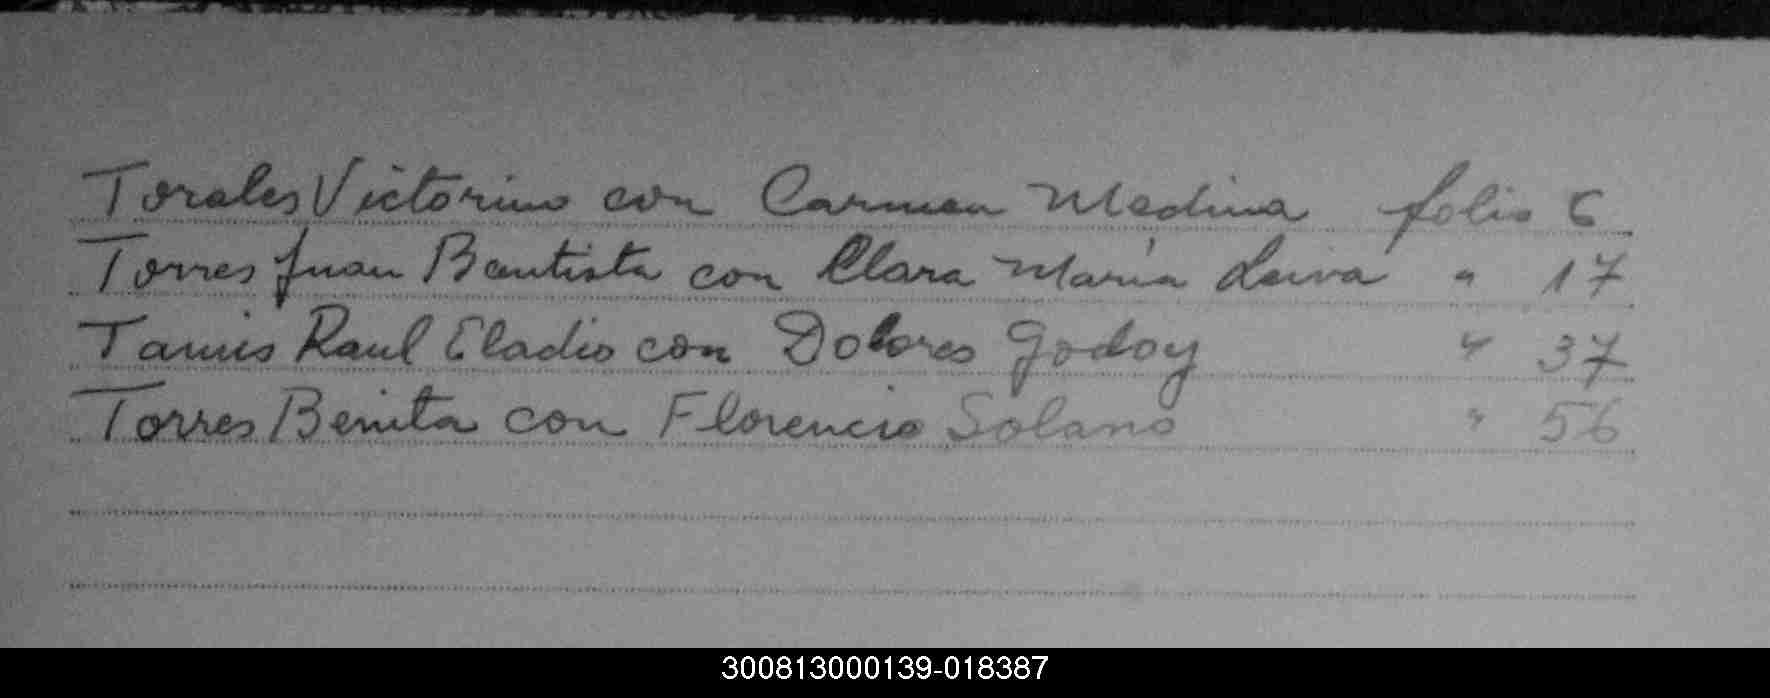 Torales Victorino con Carmen Medina folio 6
Torres Juan Bautista con Clara María Leiva " 17
Raul Eladio con Dolores Godoy " 37
Torres Benita con Florencio Solano " 56
300813000139-018387